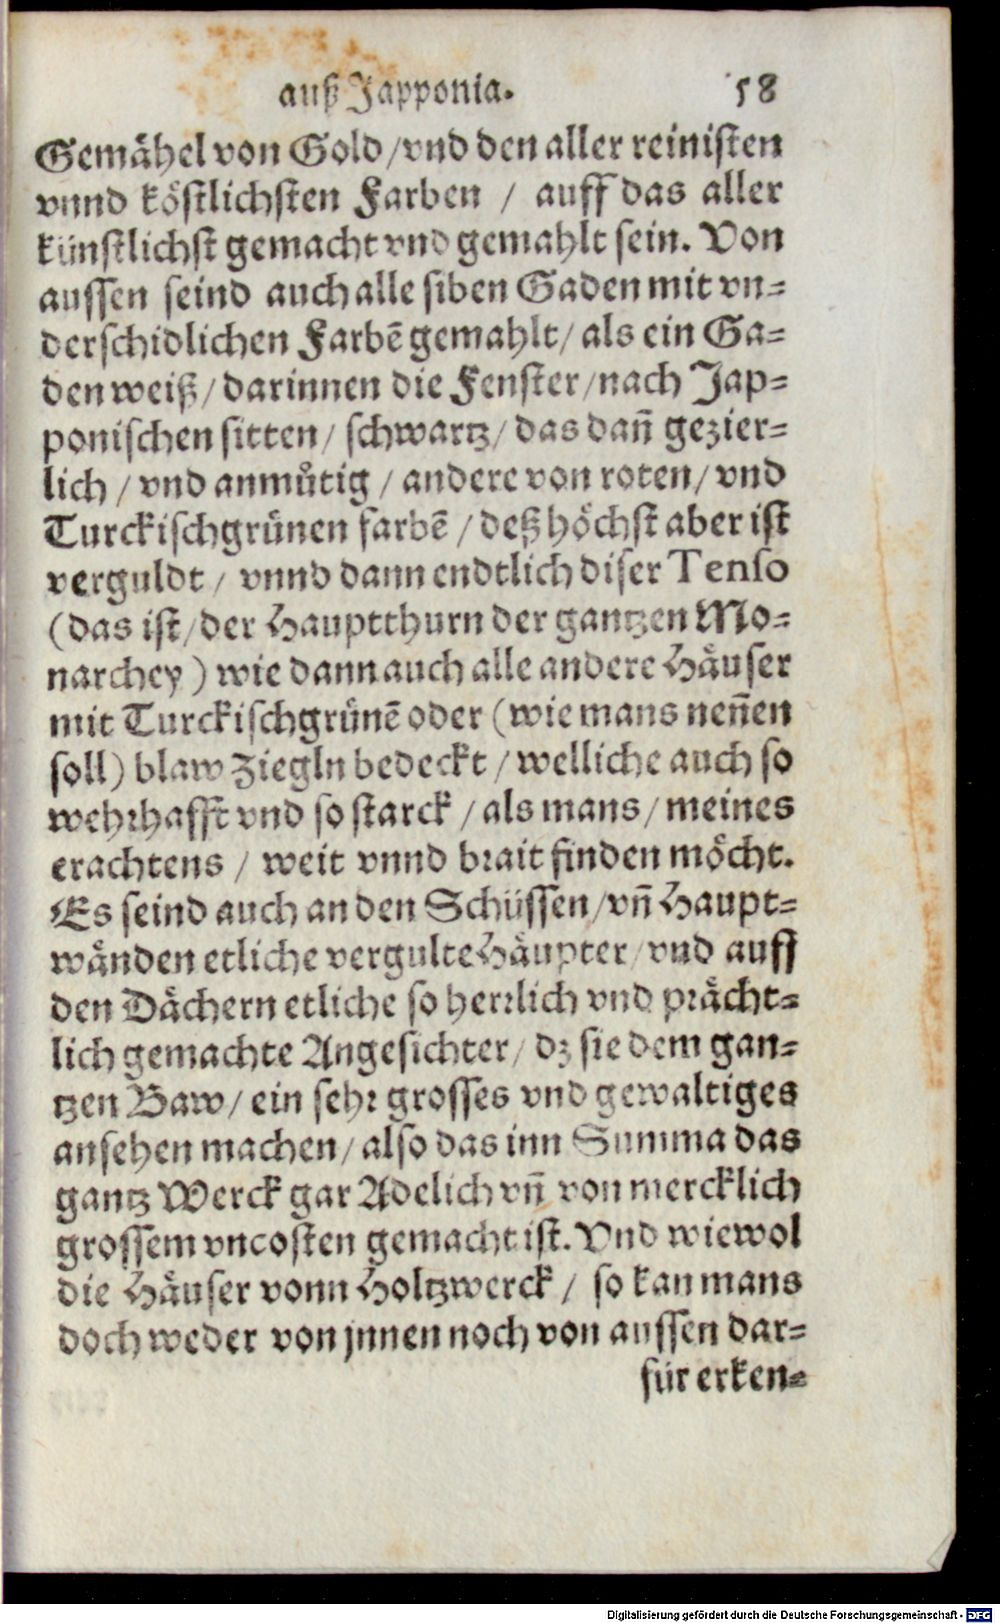 auß Japponia. 58
Gemähel von Gold / vnd den aller reinisten
vnnd köstlichsten Farben / auff das aller
künstlichst gemacht vnd gemahlt sein. Von
aussen seind auch alle siben Gaden mit vn=
derschidlichen Farbē gemahlt / als ein Ga=
den weiß / darinnen die Fenster / nach Jap=
ponischen sitten / schwartz / das dañ gezier=
lich / vnd anmůtig / andere von roten / vnd
Turckischgrünen farbē / deß höchst aber ist
verguldt / vnnd dann endtlich diser Tenso
(das ist / der Hauptthurn der gantzen Mo=
narchey) wie dann auch alle andere Häuser
mit Turckischgrünē oder (wie mans neñen
soll) blaw Ziegln bedeckt / welliche auch so
wehrhafft vnd so starck / als mans / meines
erachtens / weit vnnd brait finden möcht.
Es seind auch an den Schüssen / vñ Haupt=
wänden etliche vergulte Häupter / vnd auff
den Dächern etliche so herrlich vnd prächt=
lich gemachte Angesichter / dz sie dem gan=
tzen Baw / ein sehr grosses vnd gewaltiges
ansehen machen / also das inn Summa das
gantz Werck gar Adelich vñ von mercklich
grossem vncosten gemacht ist. Vnd wiewol
die Häuser vonn Holtzwerck / so kan mans
doch weder von jnnen noch von aussen dar=
für erken=
Digitalisierung gefördert durch die Deutsche Forschungsgemeinschaft - DFG